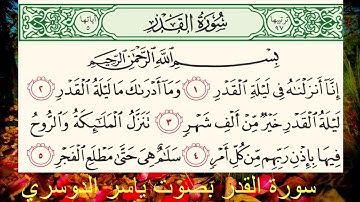 ترتيبها ٩٧ سُورَةُ القَدْرِ آياتها ٥
بِسْمِ اللَّهِ الرَّحْمَٰنِ الرَّحِيمِ
إِنَّا أَنزَلْنَٰهُ فِى لَيْلَةِ الْقَدْرِ ١ وَمَا أَدْرَىٰكَ مَا لَيْلَةُ الْقَدْرِ ٢
لَيْلَةُ الْقَدْرِ خَيْرٌ مِّنْ أَلْفِ شَهْرٍ ٣ تَنَزَّلُ الْمَلَٰٓئِكَةُ وَالرُّوحُ
فِيهَا بِإِذْنِ رَبِّهِم مِّن كُلِّ أَمْرٍ ٤ سَلَٰمٌ هِىَ حَتَّىٰ مَطْلَعِ الْفَجْرِ ٥
سورة القدر بصوت ياسر الدوسري